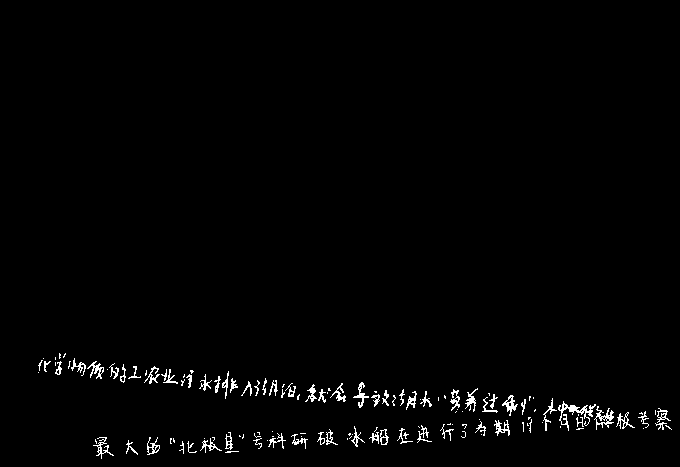 化学物质的工农业污水排入湖泊,就会导致湖水“营养过剩”,水中
最大的“北极星”号科研破冰船在进行了为期19个月的南极考察